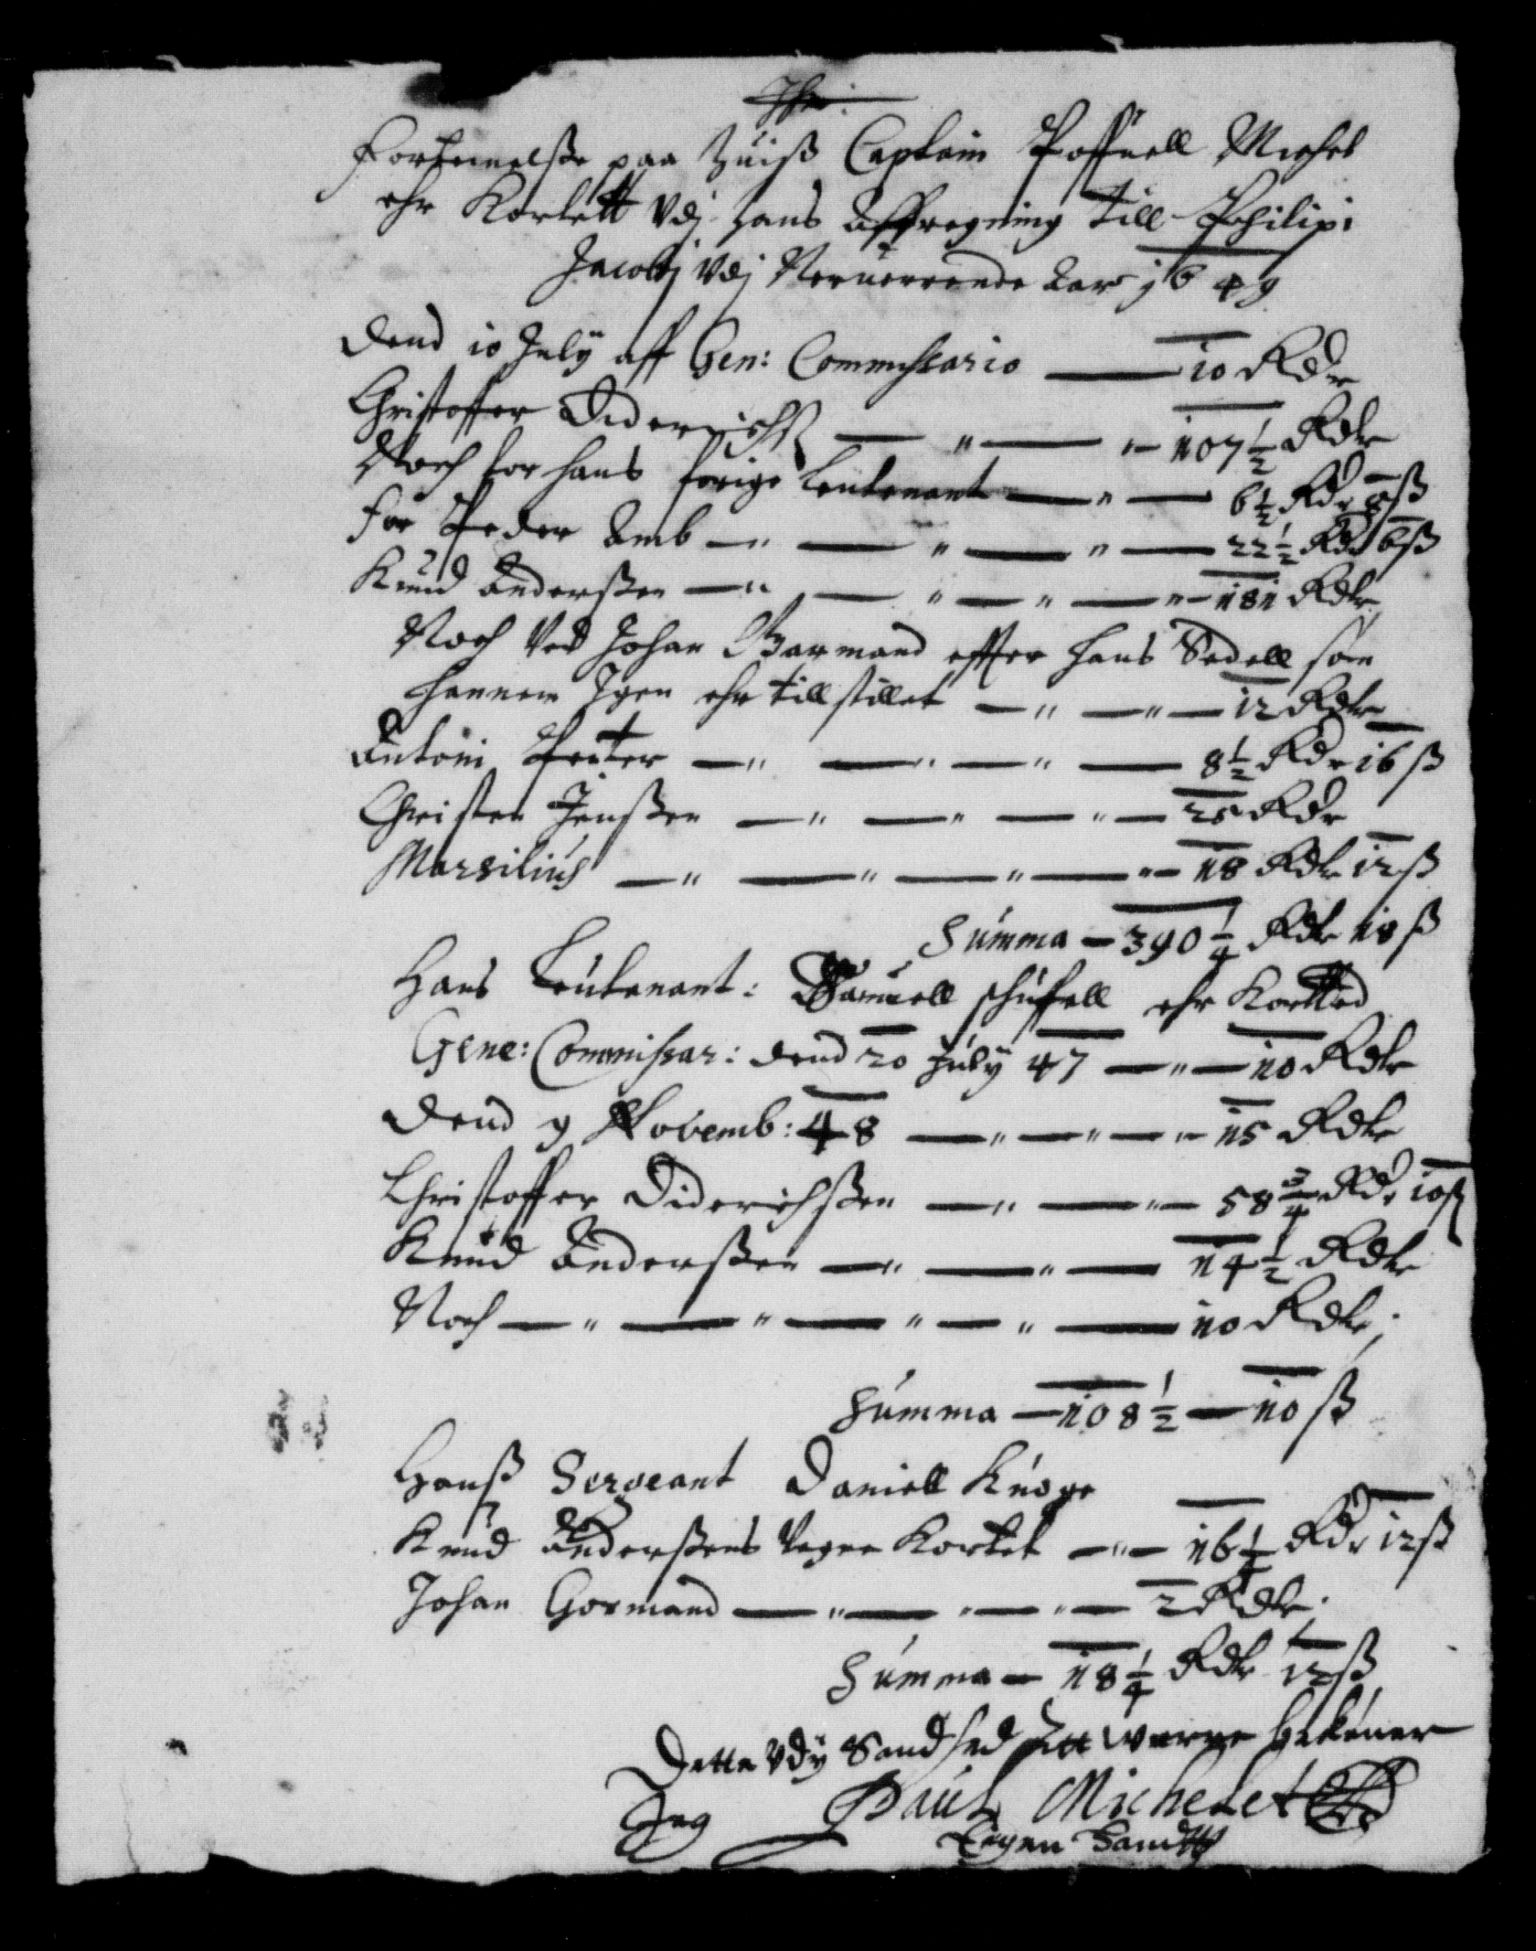 Fortegnelsse paa huiß Captein Michel
ehr Kortett Vdj hans Affregning till Philipi
Jacobj Vdj Neruerrende Aar 1649
Dend 10 July aff Gen: Commissario — 10 Rdr
Christoffer Diderichß — " — " — 107½ Rdr
Noch for hans forige Leutenant — " — 6½ Rdr 8ß
for Peder Amb — " — " — " — 22½ Rdr 6ß
Knud Anderßen — " — " — " — " — 181 Rdr
Noch Ved Johan Garmand effter hans Sedell som
hannem Igen ehr tillstillet — " — " — 12 Rdr
Antoni — " — " — " — 8½ Rdr 16 ß
Christen Jenßen — " — " — " — 25 Rdr
Marsilius — " — " — " — " — 18 Rdr 12 ß
Summa — 390¼ Rdr 18 ß
Hans Leutenant: Samuell ehr Kortted
Gene: Commissar: dend 20 July 47 — " — 10 Rdr
Dend 9 Novemb: 48 — " — " — " — 15 Rdr
Christoffer Diderichßen — " — " — 58¾ Rdr 10ß
Knud Anderßen — " — " — 14½ Rdr
Noch — " — " — " — " — 10 Rdr;
Summa — 108½ — 10 ß
Hanß Sergeant Daniell Knoge
Knud Anderßens Vegne Kortet — " — 16¼ Rdr 12ß
Johan Gormand — " — " — " — 2 Rdr.
Summa — 18¼ Rdr 12ß
Dette Vdj Sandhed att werre bekener
Jeg Paul Michelet
Eigen Handtt